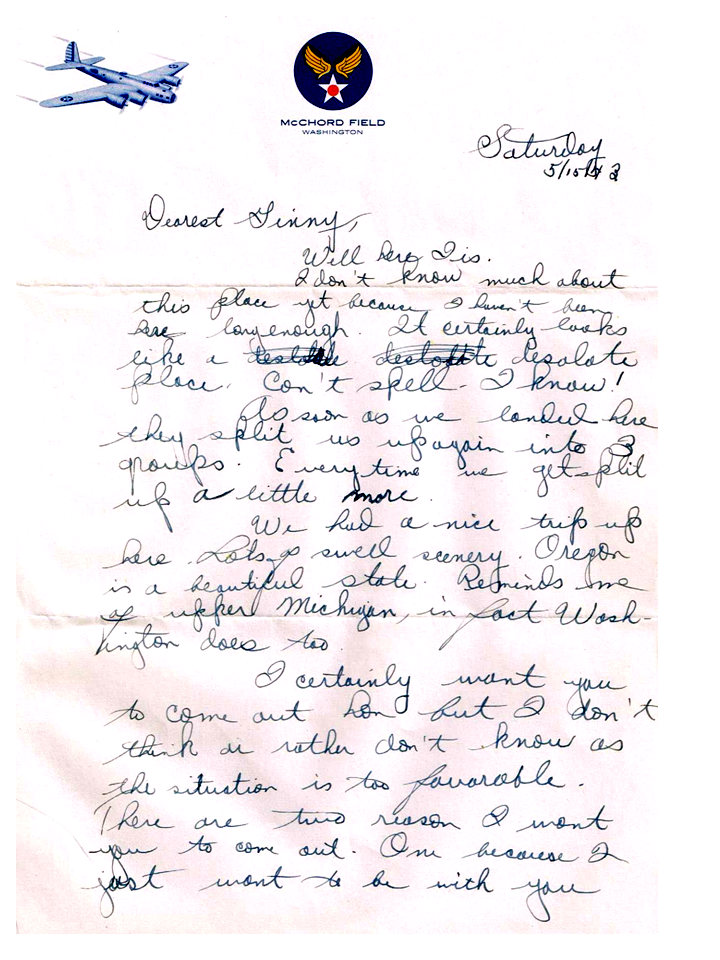 McCHORD FIELD
WASHINGTON
Saturday
5/15/43
Dearest Ginny,
Will here I is.
I don't know much about
this place yet because I haven't been
here long enough. It certainly looks
like a desolate
place. Can't spell. I know!
As soon as we landed here
they split us up again into 3
groups. Every time we get split
up a little more.
We had a nice trip up
here. Lots of swell scenery. Oregon
is a beautiful state. Reminds me
of upper Michigan, in fact Wash-
ington does too.
I certainly want you
to come out hon but I don't
think or rather don't know as
the situation is too favorable.
There are two reason I want
you to come out. One because I
just want to be with you